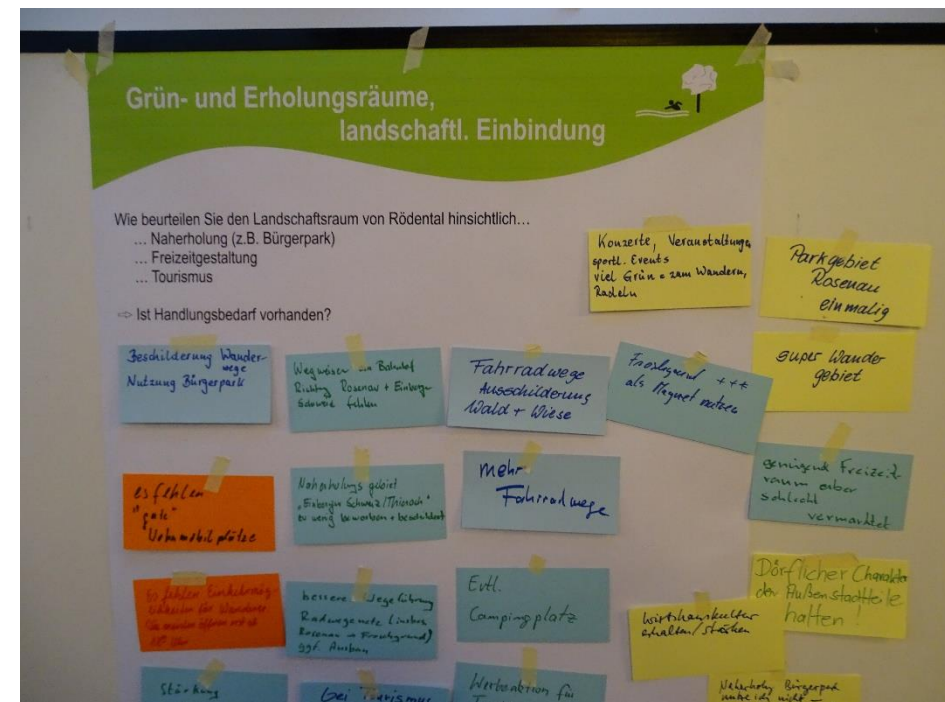 Grün- und Erholungsräume,
landschaftl. Einbindung
Wie beurteilen Sie den Landschaftsraum von Rödental hinsichtlich…
… Naherholung (z.B. Bürgerpark)
… Freizeitgestaltung
… Tourismus
⇨ Ist Handlungsbedarf vorhanden?
Konzerte, Veranstaltungen
sportl. Events
viel Grün = zum Wandern,
Radeln
Parkgebiet
Rosenau
einmalig
Beschilderung Wander-
wege
Nutzung Bürgerpark
Wegweiser am Bahnhof
Richtung Rosenau + Einberger
Schweiz fehlen
Fahrradwege
Ausschilderung
Wald + Wiese
Froschgrund +++
als Magnet nutzen
super Wander
gebiet
es fehlen
"gute"
Wohnmobilplätze
Naherholungsgebiet
"Einberger Schweiz/
zu wenig beworben + beschildert
mehr
Fahrradwege
genügend Freizeit-
raum aber
schlecht
vermarktet
Es fehlen Einkehrmög-
lichkeiten für Wanderer
bessere Wegeführung
Radwegenetz
Rosenau → Froschgrund)
ggf. Ausbau
Evtl.
Campingplatz
Wirtshauskultur
erhalten/stärken
Dörflicher Charakter
der Außenstadtteile
halten!
Stärkung
bei Tourismus
Werbeaktion für
Naherholg Bürgerpark